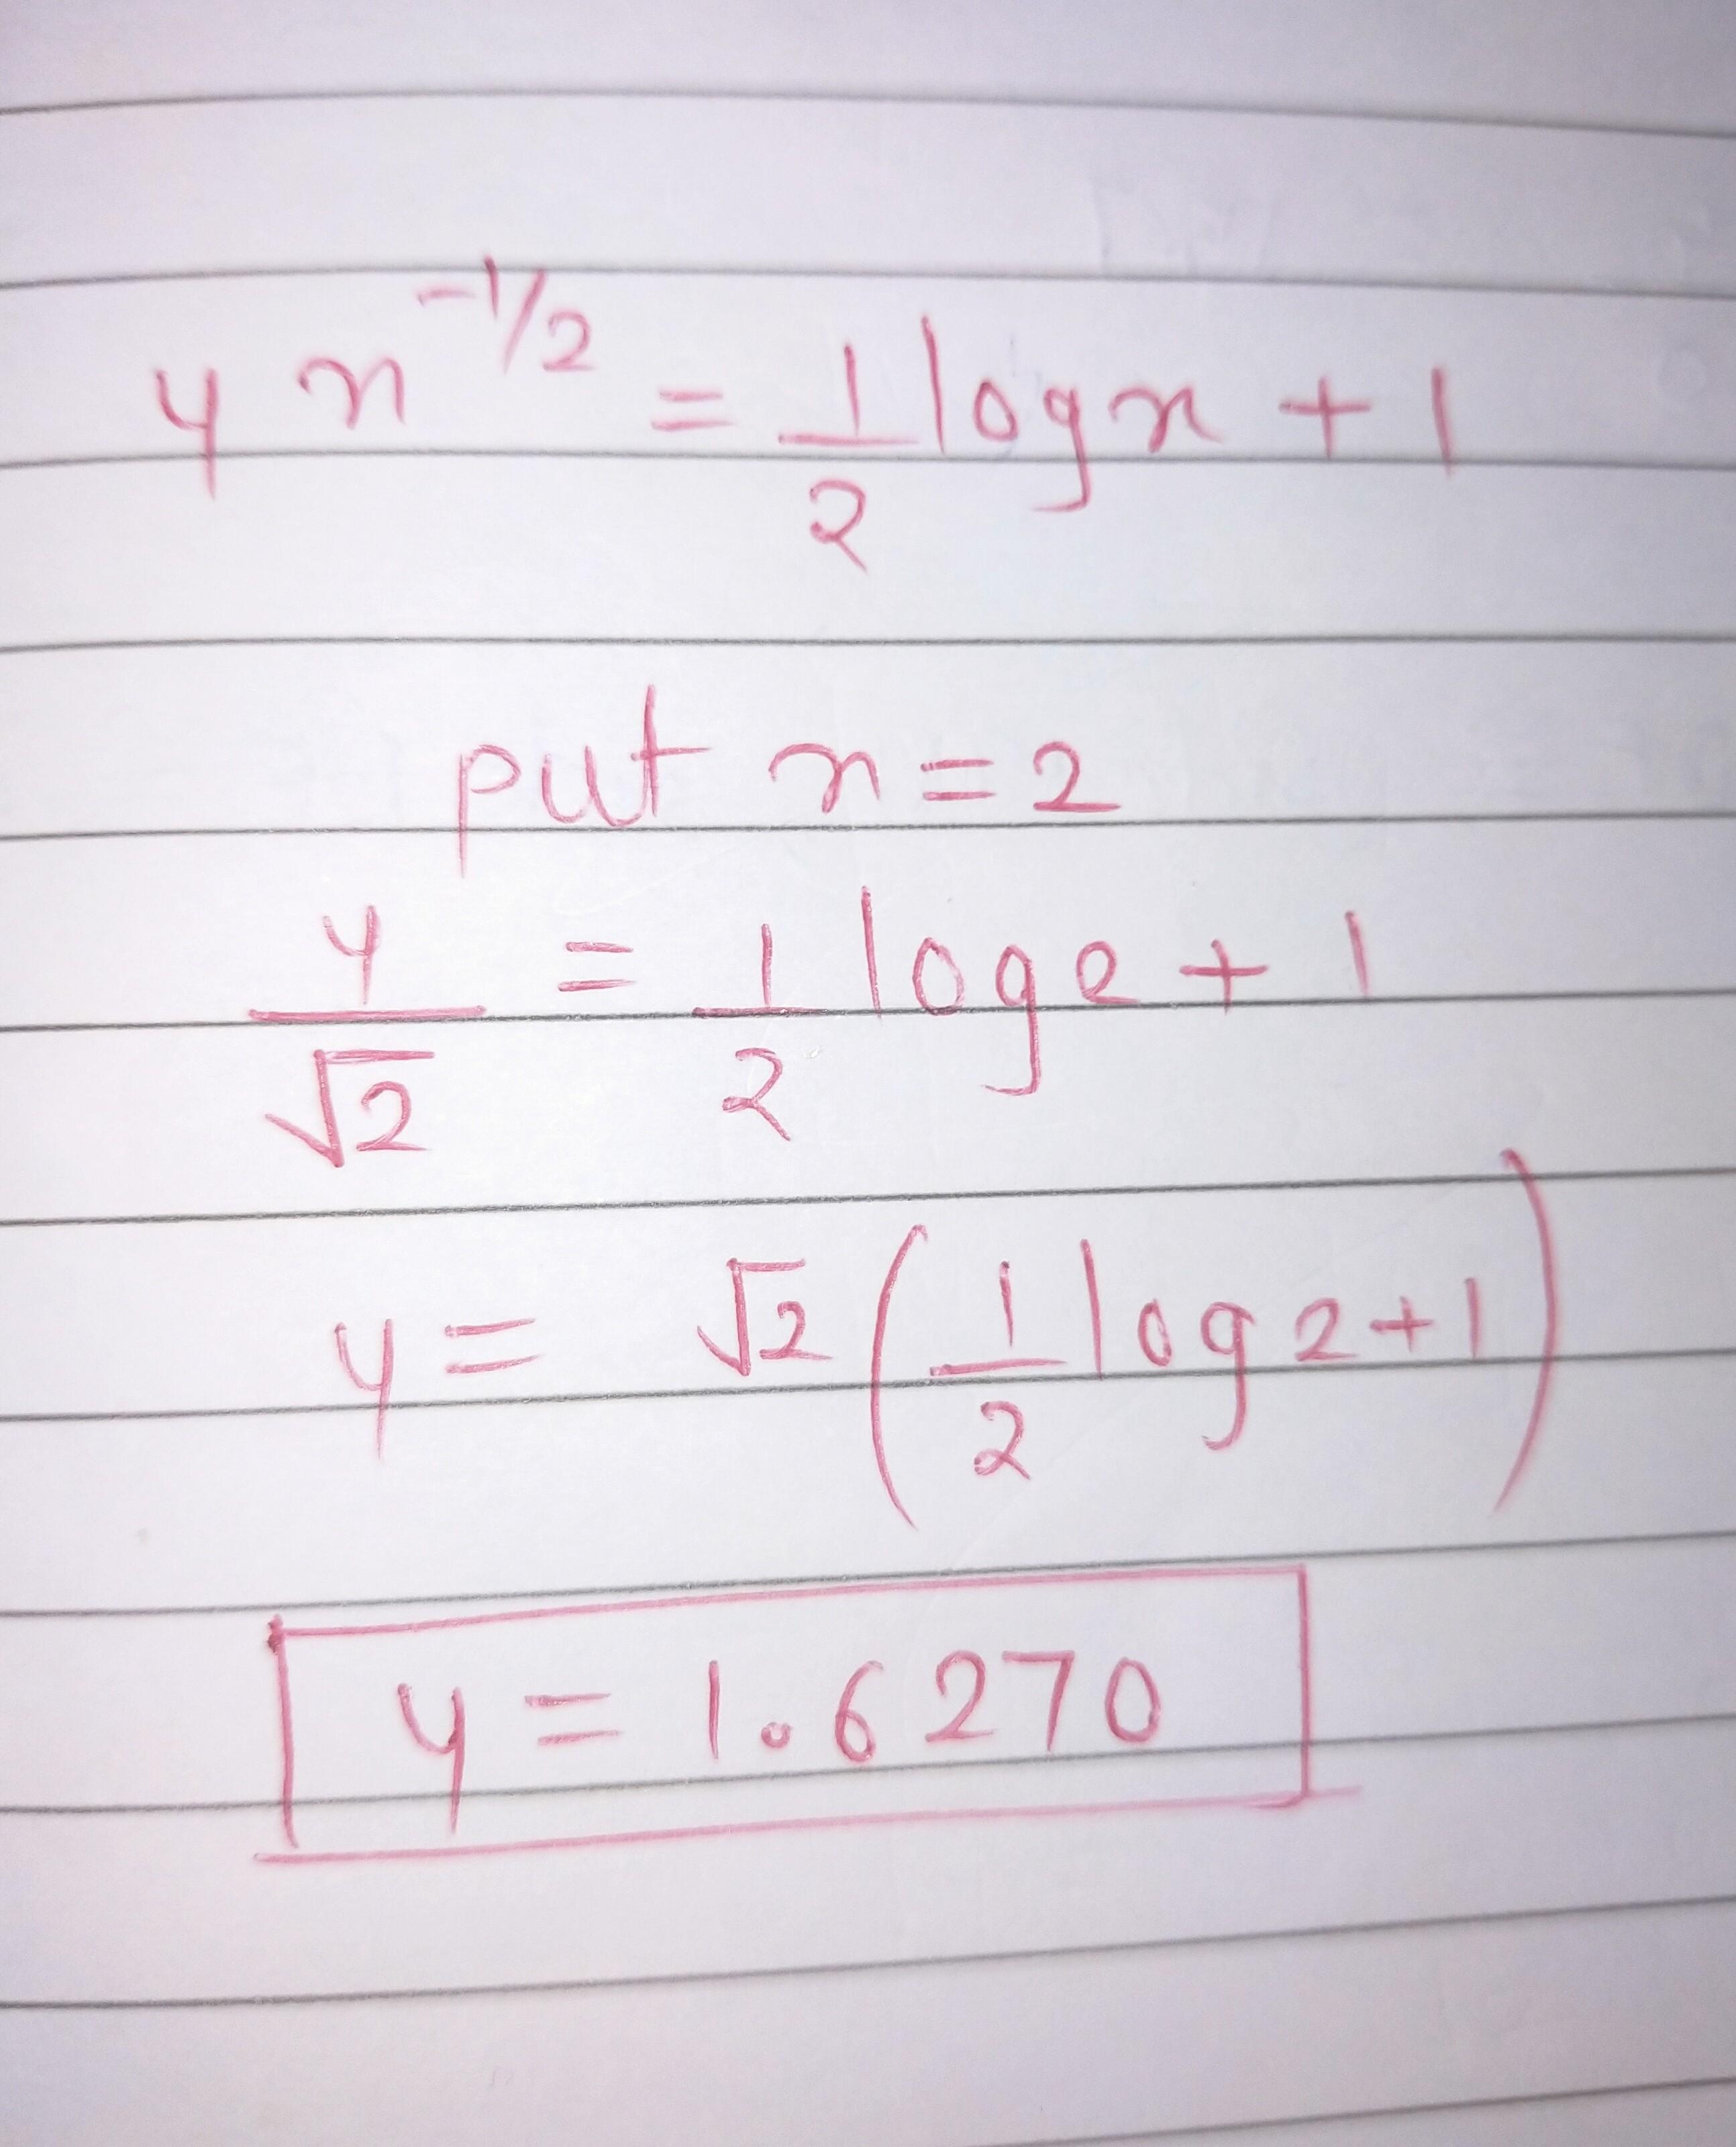 y x^{-1/2} = \frac{1}{2} log x + 1
put x = 2
\frac{y}{√2} = \frac{1}{2} log 2 + 1
y = √2 ( \frac{1}{2} log 2 + 1 )
y = 1.6270